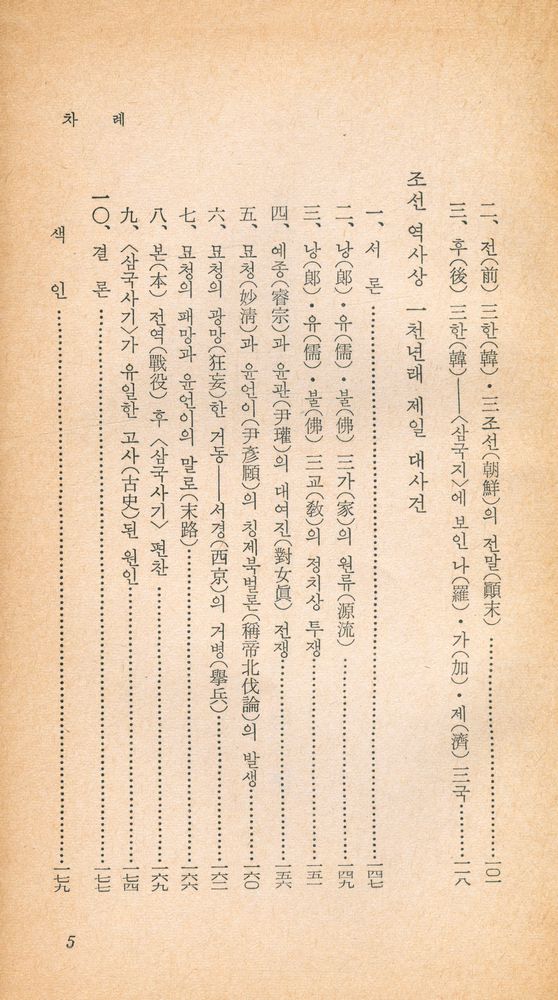 차 례
二、전(前) 三한(韓)·三조선(朝鮮)의 전말(顚末)……一〇一
三、후(後) 三한(韓)——〈삼국지〉에 보인 나(羅)·가(加)·제(濟) 三국……一一八
조선 역사상 一천년래 제일 대사건
一、서 론……一四七
二、낭(郎)·유(儒)·불(佛) 三가(家)의 원류(源流)……一四九
三、낭(郎)·유(儒)·불(佛) 三교(敎)의 정치상 투쟁……一五一
四、예종(睿宗)과 윤관(尹瓘)의 대여진(對女眞) 전쟁……一五六
五、묘청(妙淸)과 윤언이(尹彦頤)의 칭제북벌론(稱帝北伐論)의 발생……一六〇
六、묘청의 광망(狂妄)한 거동——서경(西京)의 거병(擧兵)……一六二
七、묘청의 패망과 윤언이의 말로(末路)……一六六
八、본(本) 전역(戰役) 후 〈삼국사기〉 편찬……一六九
九、〈삼국사기〉가 유일한 고사(古史)된 원인……一七四
一〇、결 론……一七七
색 인……一七九
5